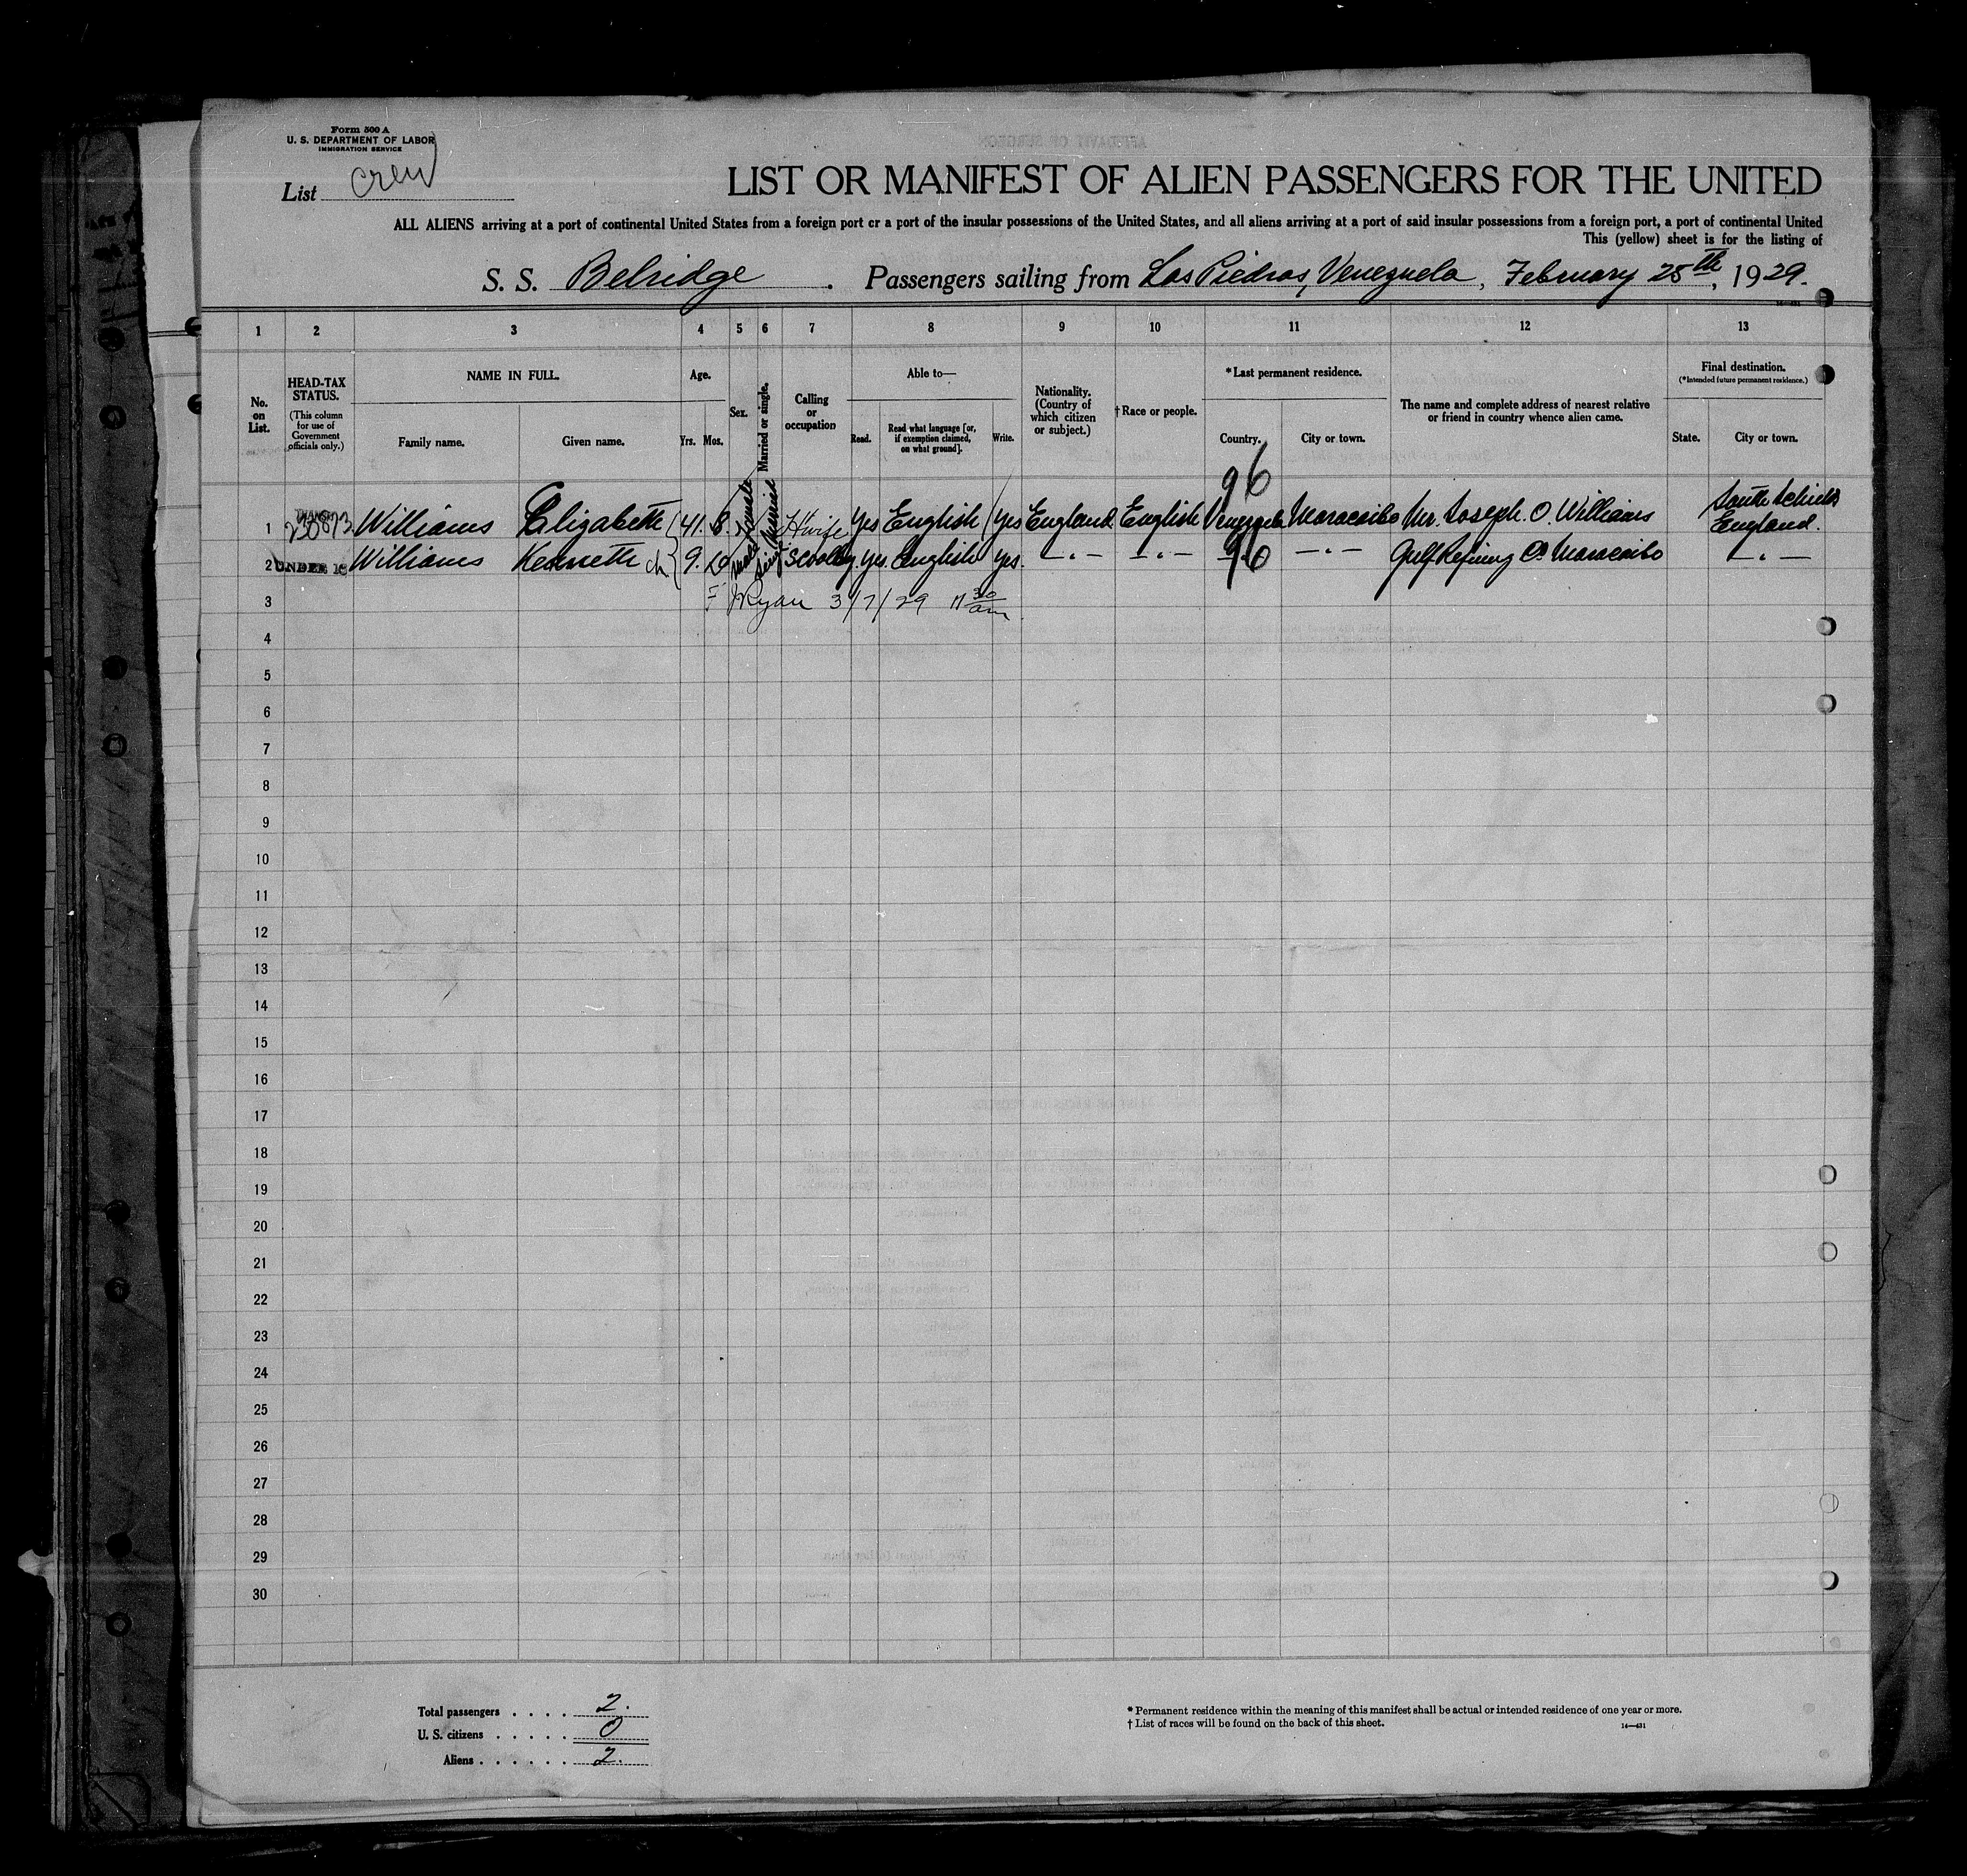 Form 500 A
U. S. DEPARTMENT OF LABOR
IMMIGRATION SERVICE
List crew
LIST OR MANIFEST OF ALIEN PASSENGERS FOR THE UNITED
ALL ALIENS arriving at a port of continental United States from a foreign port or a port of the insular possessions of the United States, and all aliens arriving at a port of said insular possessions from a foreign port, a port of continental United
This (yellow) sheet is for the listing of
S. S. Belridge. Passengers sailing from Las Piedras, Venezuela, February 25th, 1929.
1 2 3 4 5 6 7 8 9 10 11 12 13
No. on List.
HEAD-TAX STATUS.
(This column for use of Government officials only.)
NAME IN FULL.
Family name.
Given name.
Age.
Yrs. Mos.
Sex.
Married or single.
Calling or occupation
Able to—
Read.
Read what language [or, if exemption claimed, on what ground].
Write.
Nationality. (Country of which citizen or subject.)
† Race or people.
*Last permanent residence.
Country.
City or town.
The name and complete address of nearest relative or friend in country whence alien came.
Final destination.
(*Intended future permanent residence.)
State.
City or town.
96
1 Williams Elizabeth 41. 8. Female Married Hwife Yes English Yes England English Venezuela Maracaibo Mr. Joseph. O. Williams South Schields England.
2 UNDER 16 Williams Kenneth ch 9. Male Single yes. English yes. —„— —„— 96 —„— Gulf Refining Co Maracaibo —„—
3 F J Ryan 3/7/29 11 30 am
4
5
6
7
8
9
10
11
12
13
14
15
16
17
18
19
20
21
22
23
24
25
26
27
28
29
30
Total passengers . . . . 2.
U. S. citizens . . . . . 0
Aliens . . . . . . 2.
* Permanent residence within the meaning of this manifest shall be actual or intended residence of one year or more.
† List of races will be found on the back of this sheet.
14—431